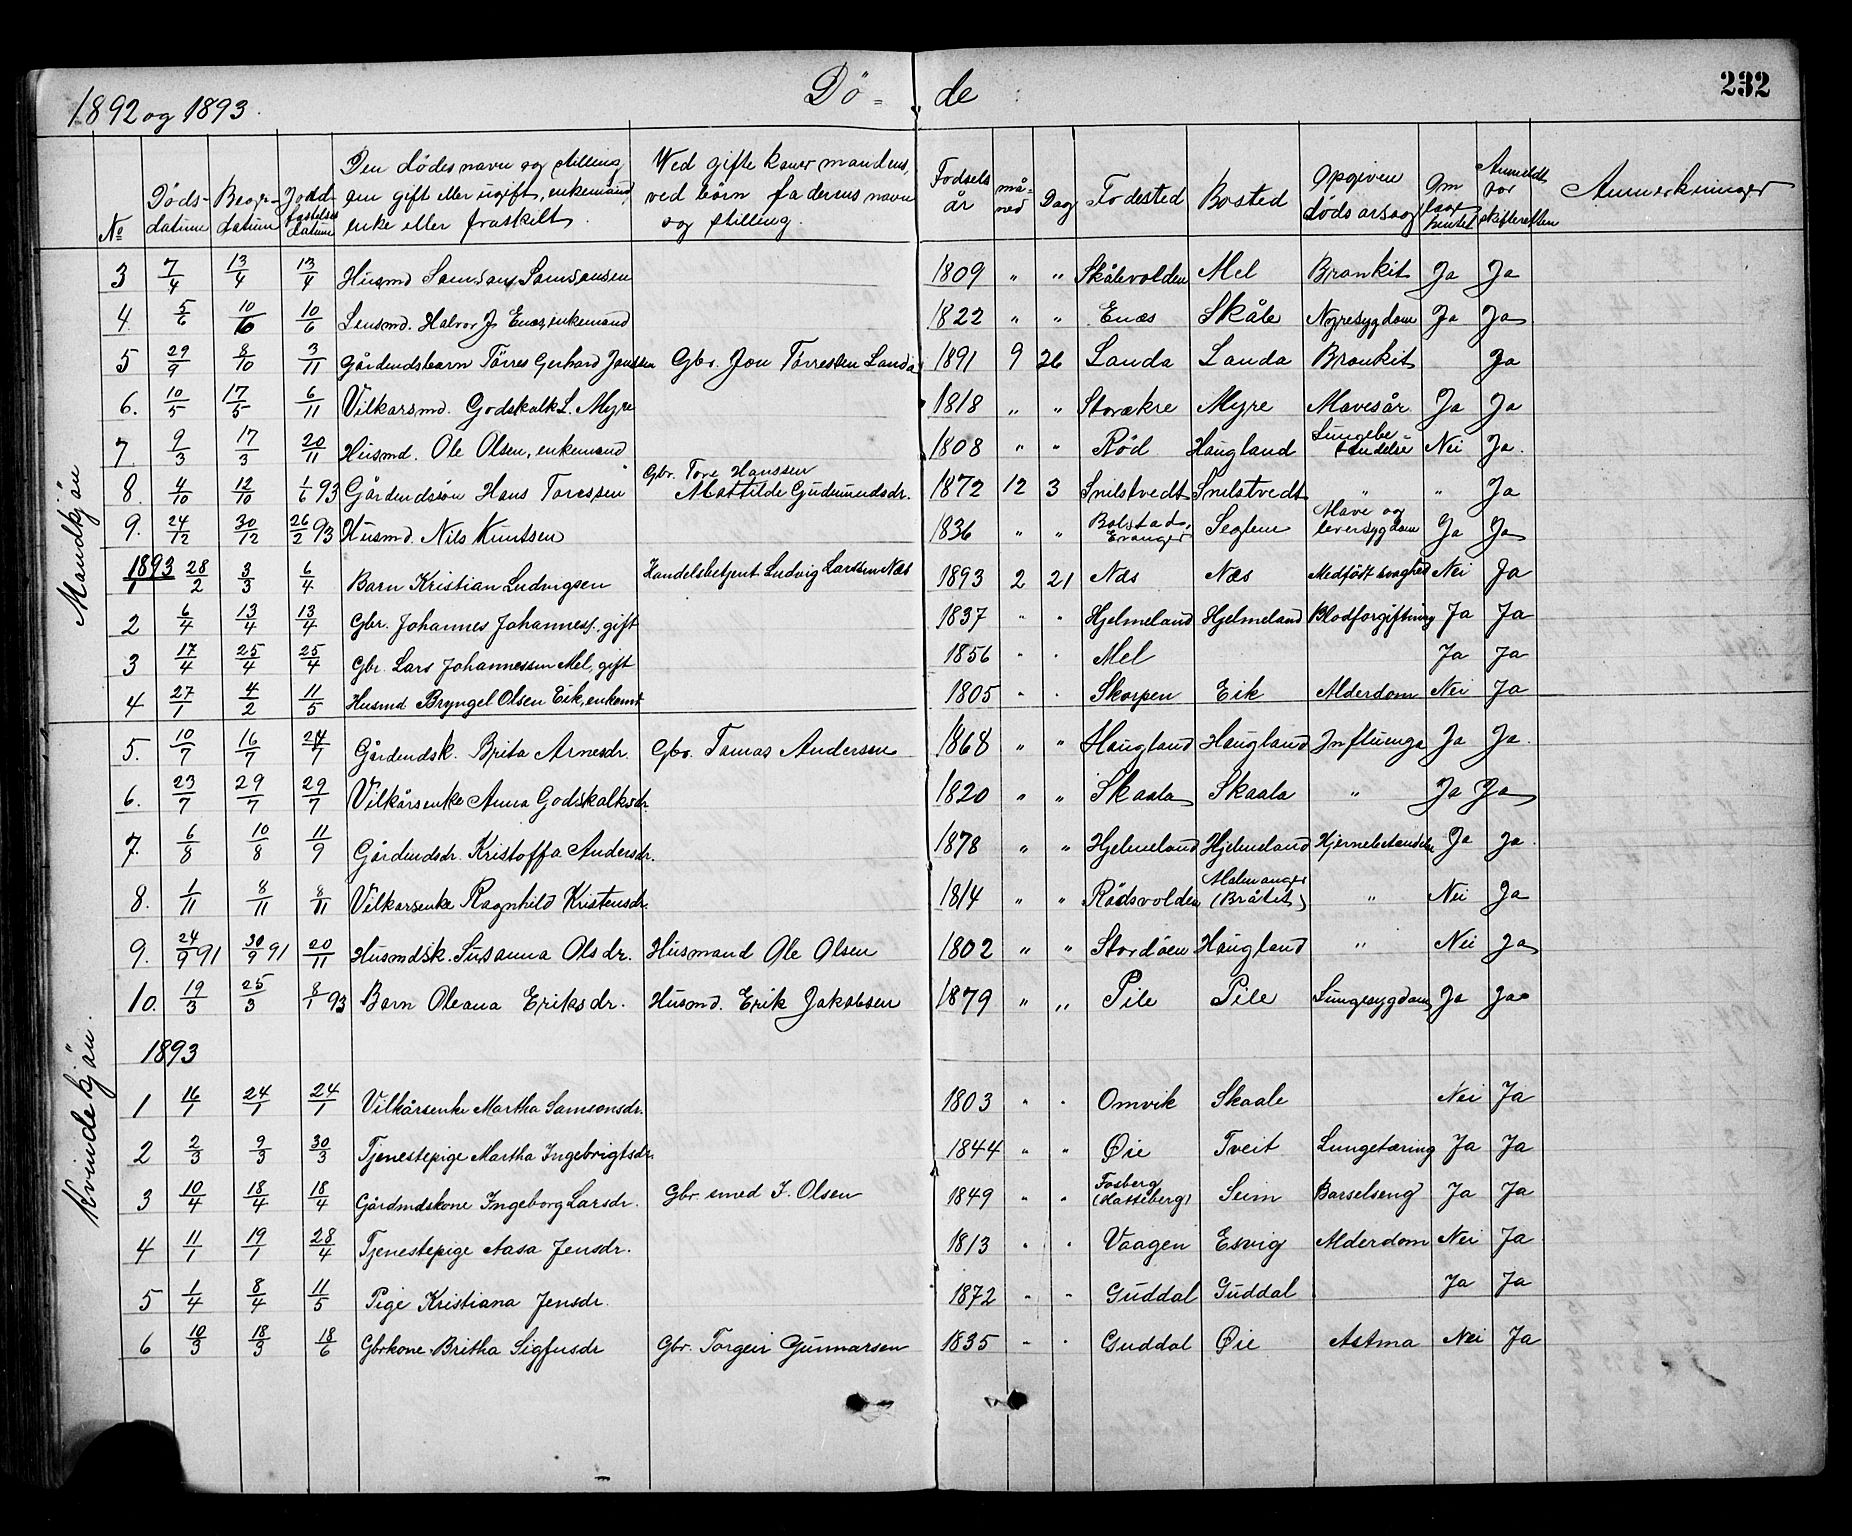 1892 og 1893. Dö- de 232
No Döds-datum Begr.-datum Jordfæstelses datum Den dödes navn og stilling, om gift eller ugift, enkemand, enke eller fraskilt. Ved gifte koner mandens, ved börn faderens navn og stilling. Fodsels år måned Dag Fodested Bosted Opgiven dödsarsag Om læge hentet Anmeldt for skifteretten Anmerkninger
Mandkjön
3 7/4 13/4 13/4 Husmd Samsons Samsonsen 1809 " " Skålevolden Mel Bronkit Ja Ja
4. 5/6 10/6 10/6 Lensmd. Halvor J. Enæs, enkemand 1822 " " Enæs Skåle Nyresygdom Ja Ja
5 29/9 8/10 3/11 Gårdmdsbarn Törres Gerhard Jonssen Gbr. Jon Törressen Landa 1891 9 26 Landa Landa Bronkit Ja
6. 10/5 17/5 6/11 Vilkarsmd. Godskalk L. Myre 1818 " " Storækre Myre Mavesår Ja Ja
7. 9/3 17/3 20/11 Husmd. Ole Olsen, enkemand 1808 " " Röd Haugland Lungebetændelse Nei Ja.
8. 4/10 12/10 1/6 93 Gårdmdssön Hans Toressen Gbr. Tore Hanssen Mattilde Gudmundsdr. 1872 12 3 Snilstvedt Snilstvedt " " Ja
9. 24/12 30/12 26/2 93 Husmd. Nils Knutsen 1836 " " Bolstad, Evanger Seglem Mave og leversygdom Ja Ja
1893
1 28/2 3/3 6/4 Barn Kristian Ludvigsen Handelsbetjent Ludvig Larssen Næs 1893 2 21 Næs Næs Medfödt svaghed Nei Ja
2 6/4 13/4 13/4 Gbr. Johannes Johanness. gift 1837 " " Hjelmeland Hjelmeland Blodforgiftning Ja Ja
3 17/4 25/4 25/4 Gbr. Lars Johannessen Mel, gift 1856 " " Mel Ja Ja
4 27/1 4/2 11/5 Husmd Bryngel Olsen Eik, enkemd 1805 " " Skorpen Eik Alderdom Nei Ja
Kvindekjön.
5. 10/7 16/7 24/7 Gårdmdsk. Brita Arnesdr. Gbr. Tomas Andersen 1868 " " Haugland Haugland Influenza Ja Ja.
6. 23/7 29/7 29/7 Vilkårsenke Anna Godskalksdr. 1820 " " Skaala Skaala " Ja Ja
7. 6/8 10/8 11/9 Gårdmdsdr. Kristoffa Andersdr. 1878 " " Hjelmeland Hjelmeland Hjernebetændelse Ja Ja.
8. 1/11 8/11 8/11 Vilkarsenke Ragnhild Kristensdr. 1814 " " Rödsvolden Malmanger (Bråtet) " Nei Ja
9. 24/9 91 30/9 91 20/11 Husmdsk. Susanna Olsdr. Husmand Ole Olsen 1802 " " Stordöen Haugland " Nei Ja
10. 19/3 25/3 8/1 93 Barn Oleana Eriksdr. Husmd. Erik Jakobsen 1879 " " Pile Pile Lungesygdom Ja Ja
1893
1 16/1 24/1 24/1 Vilkårsenke Martha Samsonsdr. 1803 " " Omvik Skaale Nei Ja
2 2/3 9/3 30/3 Tjenestepige Martha Ingebrigtsdr. 1844 " " Øie Tveit Lungetæring Ja Ja
3 10/4 18/4 18/4 Gårdmdskone Ingeborg Larsdr. Gbr. smed J. Olsen 1849 " " Fosberg (Hatteberg) Seim Barselseng Ja Ja
4 11/1 19/1 28/4 Tjenestepige Aasa Jensdr. 1813 " " Vaagen Esvig Alderdom Nei Ja
5 1/4 8/4 11/5 Pige Kristiana Jensdr. 1872 " " Guddal Guddal Ja Ja
6 10/3 18/3 18/6 Gbrkone Britha Sigfusdr Gbr. Torgeir Gunnarsen 1835 " " Guddal Øie Astma Nei Ja